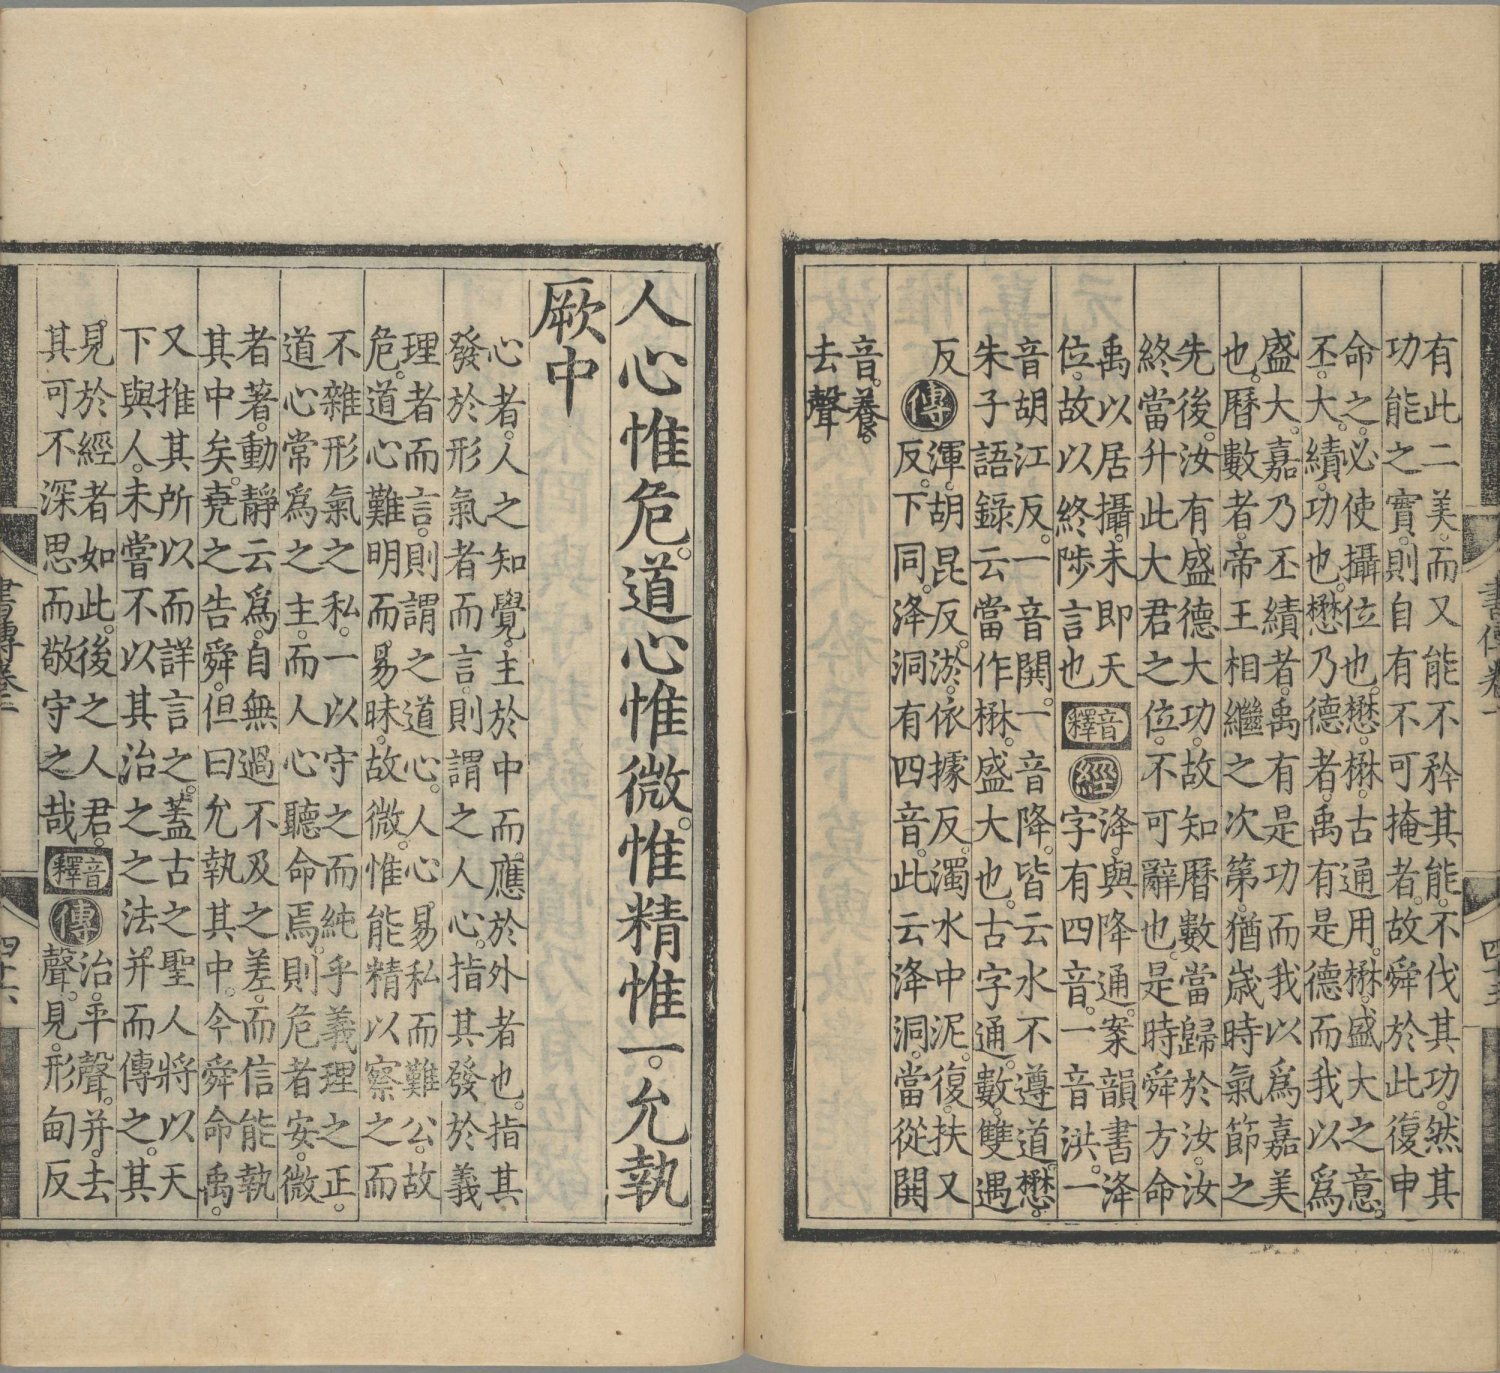 有此二美。而又能不矜其能。不伐其功。然其
功能之實。則自有不可掩者。故舜於此復申
命之。必使攝位也。懋。楙。古通用。楙。盛大之意。
丕。大。績。功也。懋乃德者。禹有是德而我以爲
盛大。嘉乃丕績者。禹有是功而我以爲嘉美
也。曆數者。帝王相繼之次第。猶歲時氣節之
先後。汝有盛德大功。故知曆數當歸於汝。汝
終當升此大君之位。不可辭也。是時舜方命
禹以居攝。未即天
位。故以終陟言也
音釋
經
洚。與降通。案韻書洚
字有四音。一音洪。一
音胡江反。一音閧。一音降。皆云水不遵道。懋。
朱子語錄云當作楙。盛大也。古字通。數。雙遇
反
傳
渾。胡昆反。淤。依據反。濁水中泥。復。扶又
反。下同。洚洞有四音。此云洚洞。當從閧
音。養。
去聲
書傳卷一
四十五
人心惟危。道心惟微。惟精惟一。允執
厥中
心者。人之知覺。主於中而應於外者也。指其
發於形氣者而言。則謂之人心。指其發於義
理者而言。則謂之道心。人心易私而難公。故
危。道心難明而易昧。故微。惟能精以察之而
不雜形氣之私。一以守之而純乎義理之正。
道心常爲之主。而人心聽命焉。則危者安。微
者著。動靜云爲。自無過不及之差。而信能執
其中矣。堯之告舜。但曰允執其中。今舜命禹。
又推其所以而詳言之。蓋古之聖人將以天
下與人。未嘗不以其治之之法。并而傳之。其
見於經者如此。後之人君。
其可不深思而敬守之哉
音釋
傳
治。平聲。并。去
聲。見。形甸反
書傳卷一
四十六